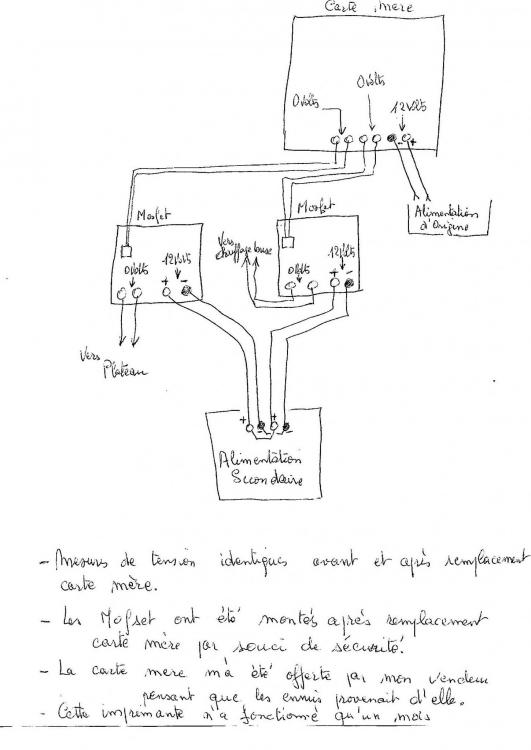 Carte mère
0 volts
0 volts
12 volts
- +
Alimentation
d'Origine
Mosfet
Mosfet
Vers
chauffage buse
0 volts
12 volts
+ -
0 volts
12 volts
+ -
Vers
Plateau
+ - + -
Alimentation
Secondaire
- Mesures de tension identiques avant et après remplacement
carte mère.
- Les Mofset ont été montés après remplacement
carte mère par souci de sécurité.
- La carte mere m'a été offerte par mon vendeur
pensant que les ennuis provenait d'elle.
- Cette imprimante n'a fonctionné qu'un mois